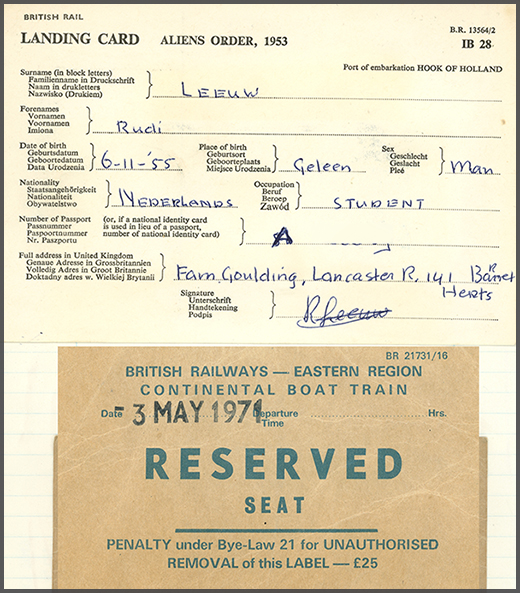 BRITISH RAIL
B.R. 13564/2
LANDING CARD ALIENS ORDER, 1953 IB 28
Port of embarkation HOOK OF HOLLAND
Surname (in block letters)
Familienname in Druckschrift
Naam in drukletters
Nazwisko (Drukiem)
LEEUW
Forenames
Vornamen
Voornamen
Imiona
Rudi
Date of birth
Geburtsdatum
Geboortedatum
Data Urodzenia
6-11-'55
Place of birth
Geburtsort
Geboorteplaats
Miejsce Urodzenia
Geleen
Sex
Geschlecht
Geslacht
Płeć
Man
Nationality
Staatsangehörigkeit
Nationaliteit
Obywatelstwo
NEDERLANDS
Occupation
Beruf
Beroep
Zawód
STUDENT
Number of Passport
Passnummer
Paspoortnummer
Nr. Paszportu
(or, if a national identity card
is used in lieu of a passport,
number of national identity card)
A
Full address in United Kingdom
Genaue Adresse in Grossbritannien
Volledig Adres in Groot Britannie
Dokładny adres w. Wielkiej Brytanii
Fam Goulding, Lancaster R, 141 Barnet
Herts
Signature
Unterschrift
Handtekening
Podpis
RLeeuw
BR 21731/16
BRITISH RAILWAYS — EASTERN REGION
CONTINENTAL BOAT TRAIN
Date - 3 MAY 1971 Departure Time Hrs.
RESERVED
SEAT
PENALTY under Bye-Law 21 for UNAUTHORISED
REMOVAL of this LABEL — £25